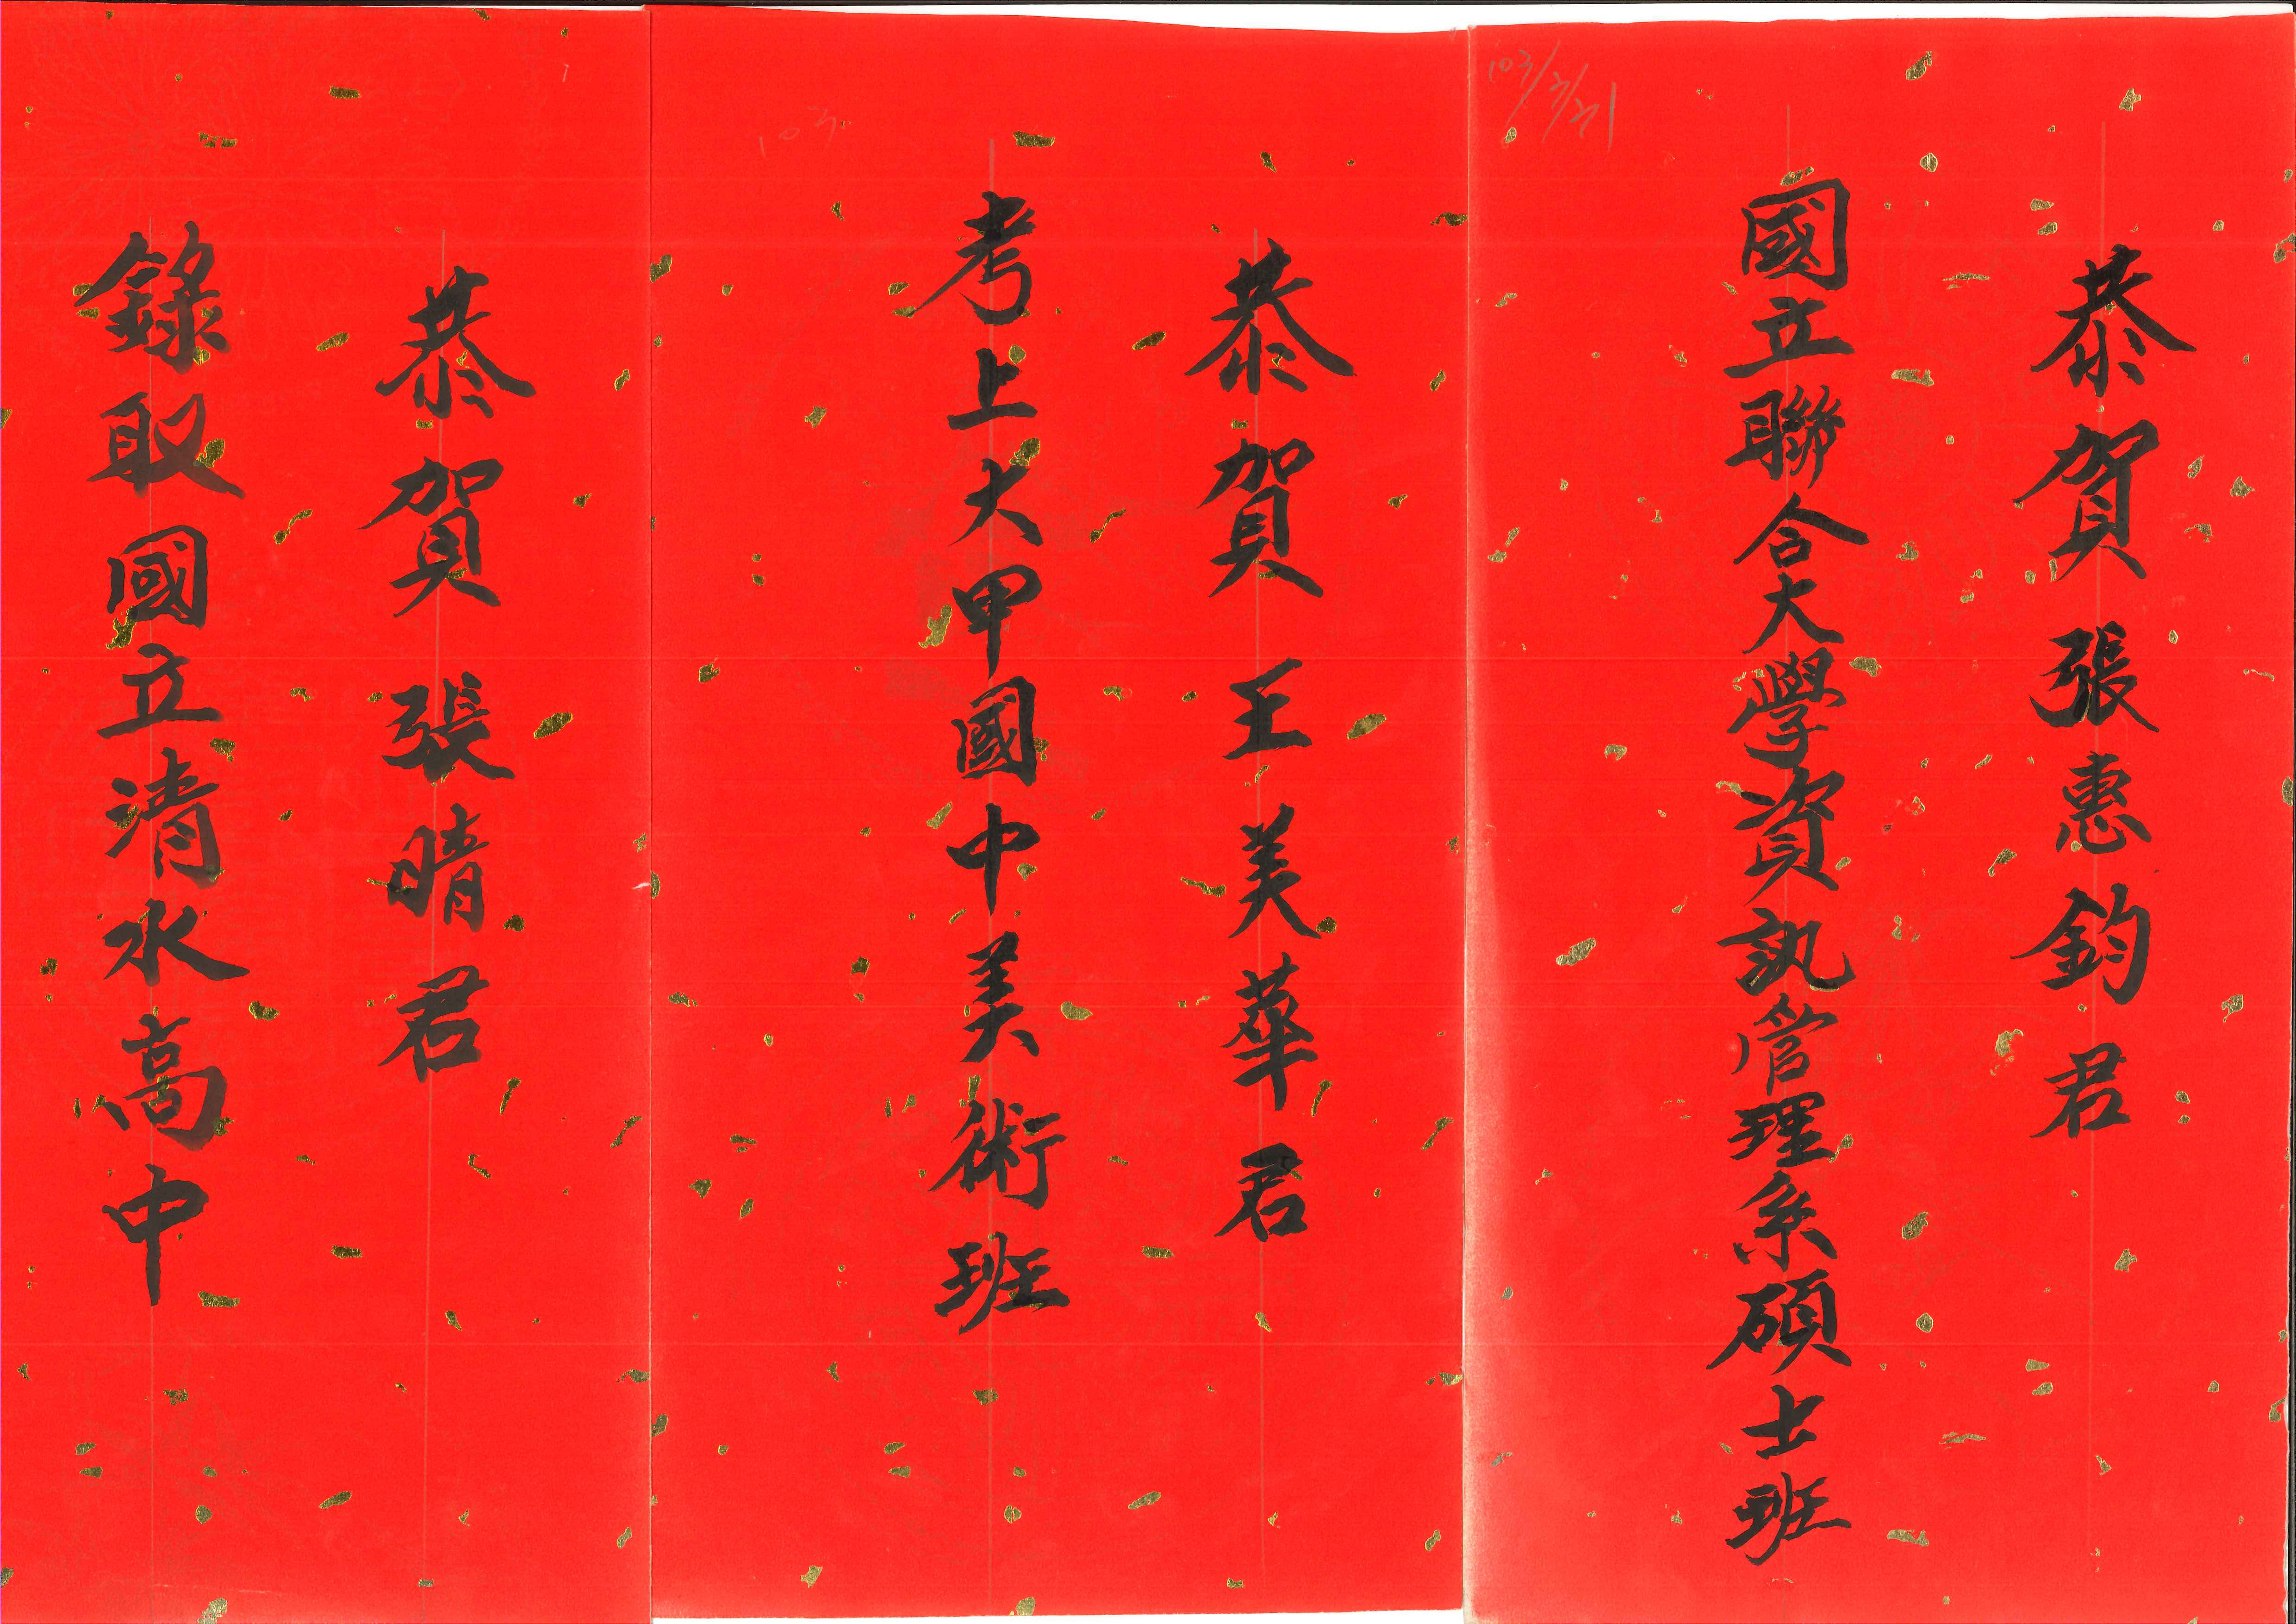 103/3/31
恭賀 張惠鈞君
國立聯合大學資訊管理系碩士班
103
恭賀 王美華君
考上大甲國中美術班
恭賀 張晴君
錄取國立清水高中